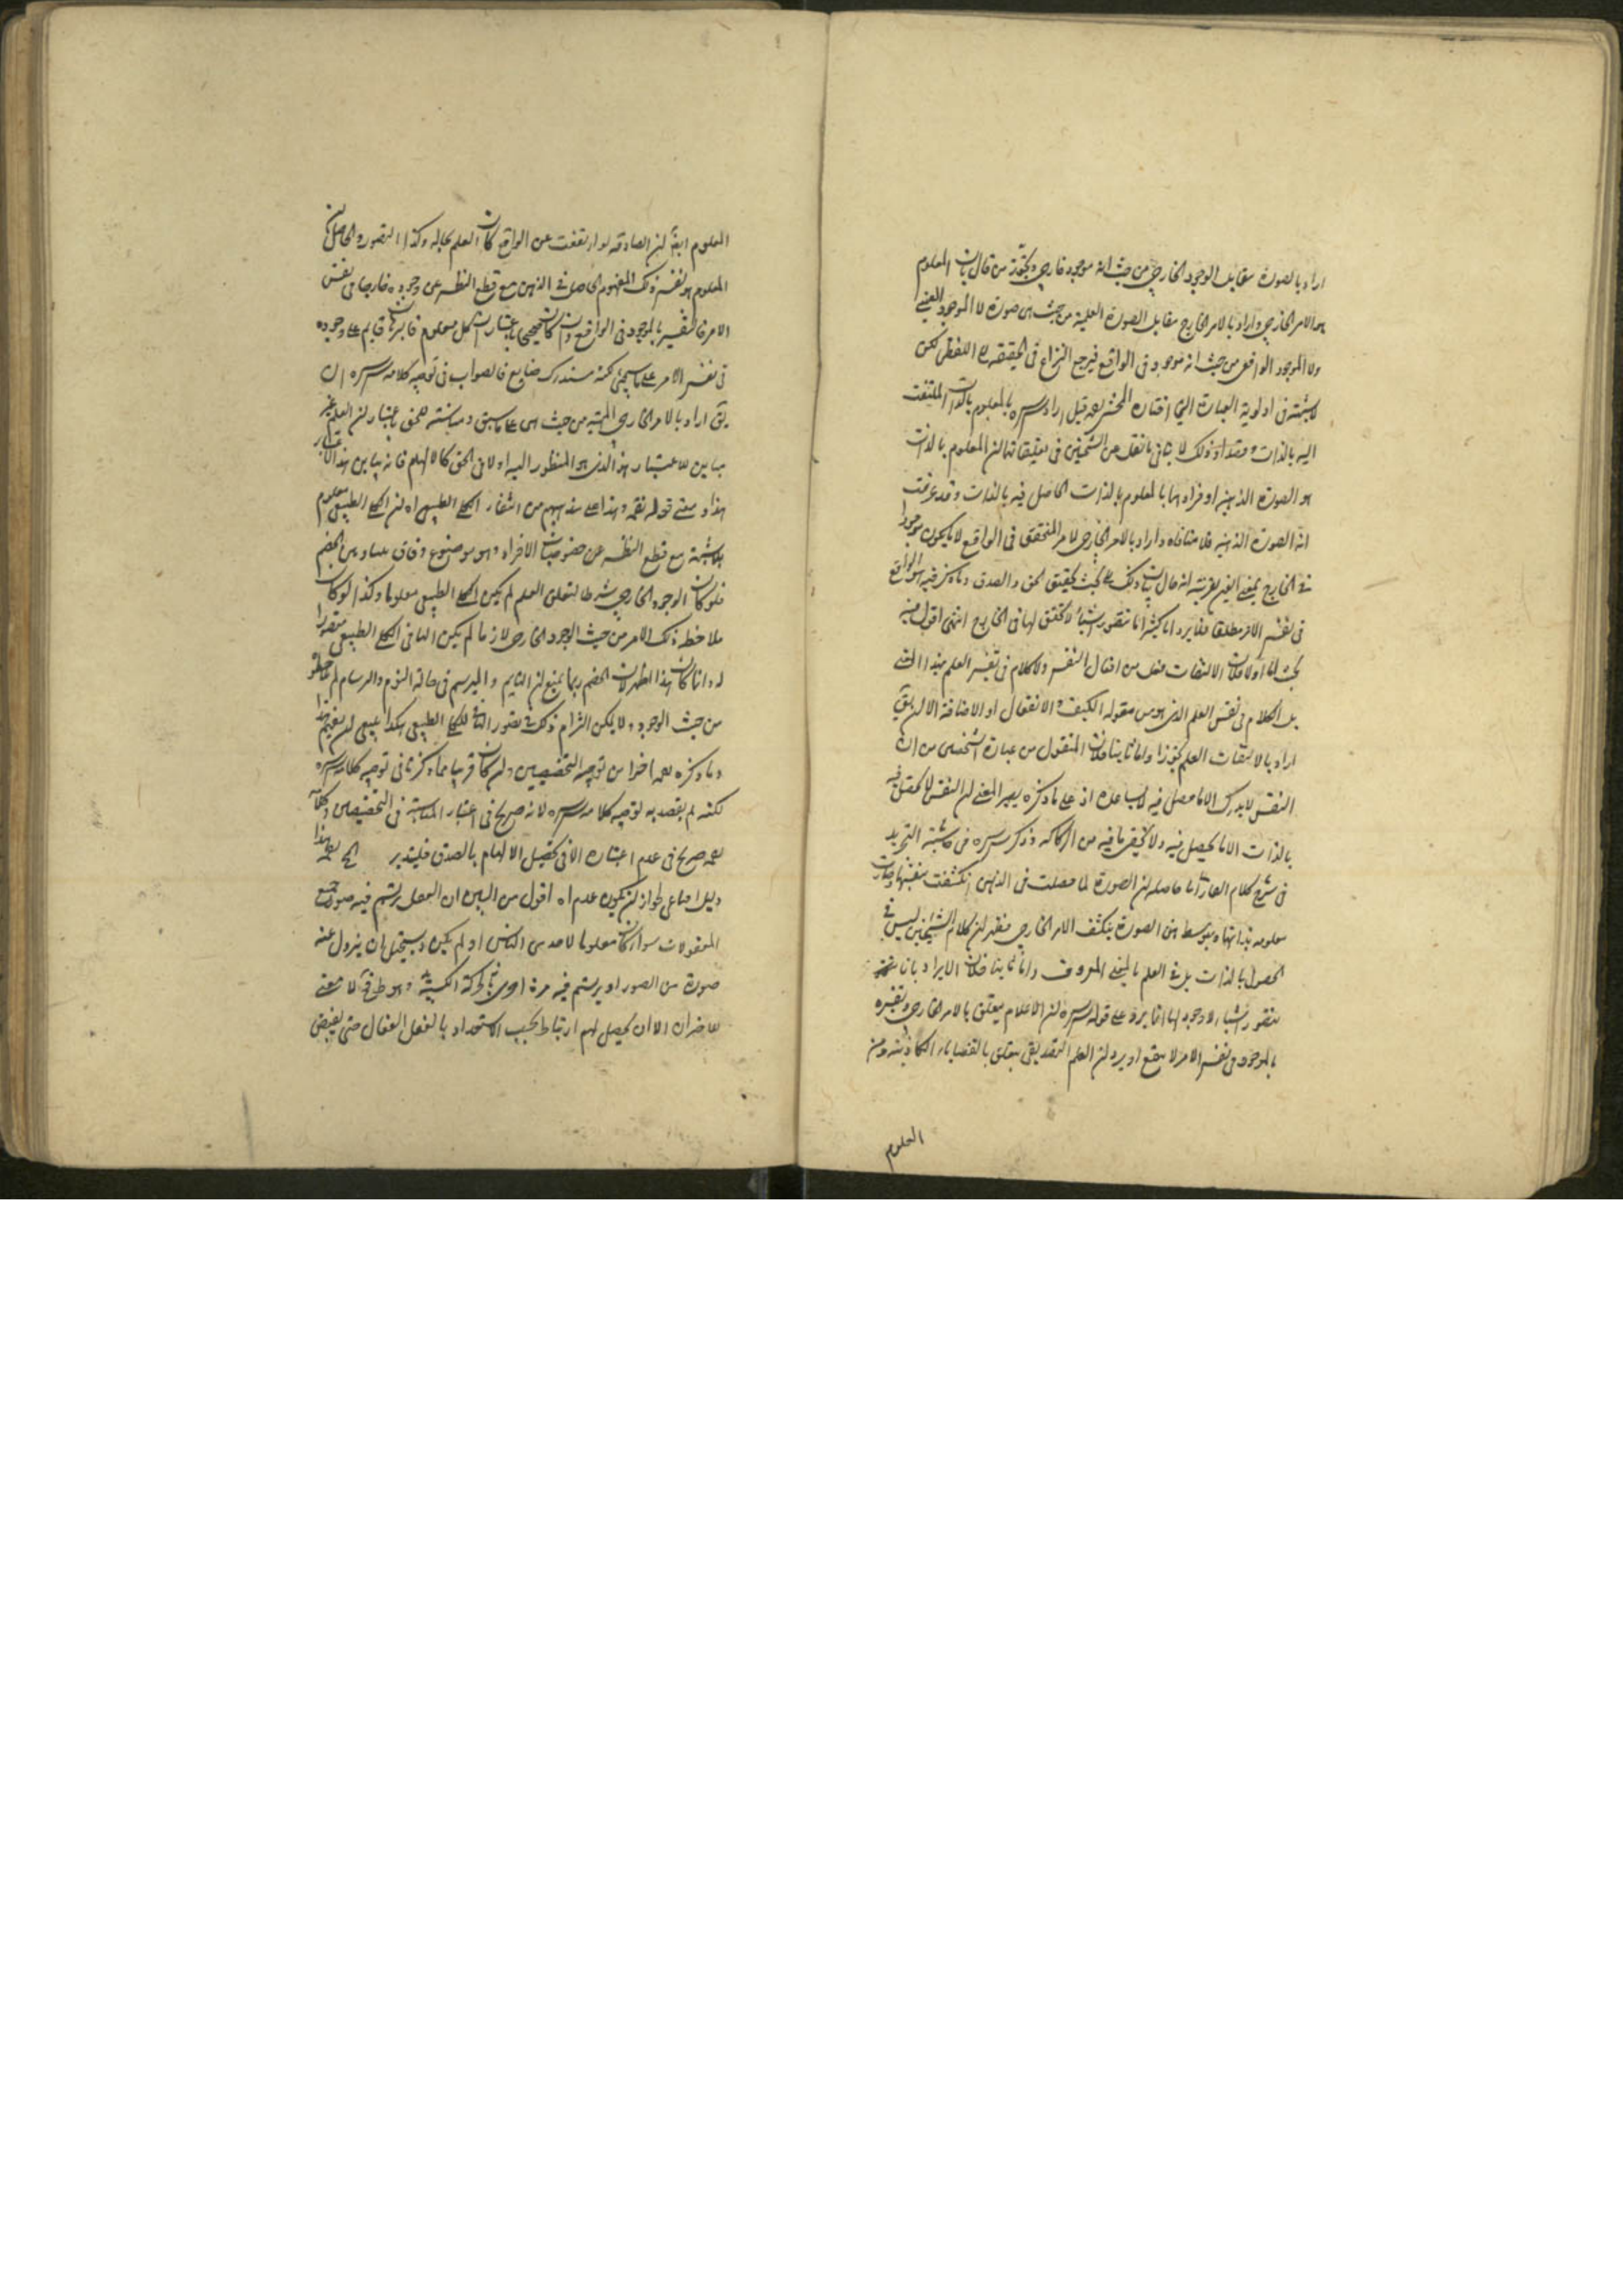 اراد بالصورة مقابل الوجود الخارجي من حيث انه موجود خارجي من قال بان المعلوم
هو الامر الخارجي واراد بالامر الخارج مقابل الصورة العلمية من حيث هي صورة لا الموجود العيني
ولا الموجود الواقعي من حيث انه موجود في الواقع فيرجع النزاع في الحقيقة الى اللفظي لكن
لا شبهة في اولوية العبارة التي اختاره المحشي قيل اراد سره بالمعلوم بالذات الملتفت
اليه بالذات وذلك لا ينافي ما نقل عن الشيخين في تعليقاتهما ان المعلوم بالذات
هو الصورة الذهنية او مرادهما بالمعلوم بالذات الحاصل فيه بالذات وقد عرفت
انه الصورة الذهنية فلا منافاة واراد بالامر الخارجي الامر المتحقق في الواقع لا ما يكون موجودا
في الخارج بمعنى العين بقرينة انه قال ذلك في بحث تحقيق الحق والصدق وما ذكر فيه هو الواقع
في نفس الامر مطلقا فلا يرد انا كثيرا ما نتصور شيئا لا تحقق لها في الخارج انتهى اقول فيه
بحث اما اولا فلان الالتفات فعل من افعال النفس ولا كلام في تفسير العلم بهذا المعنى
بل الكلام في نفس العلم الذي هو من مقولة الكيف او الانفعال او الاضافة الا ان يقال
اراد بالالتفات العلم تجوزا واما ثانيا فلان المنقول من عبارة الشيخين من ان
النفس لا يدرك الا ما حصل فيه لا يساعده اذ على ما ذكره يصير المعنى ان النفس لا يحصل فيه
بالذات الا ما يحصل فيه ولا يخفى ما فيه من الركاكة وذكر سره في حاشية التجريد
في شرح كلام ما حاصله ان الصورة لما حصلت في الذهن انكشفت بنفسها وصارت
معلومة بذاتها وبتوسط هذه الصورة ينكشف الامر الخارجي فظهر ان كلام الشيخين ليس في
الحصول بالذات بل في العلم بالمعنى المعروف واما ثالثا فلان الايراد بانا
نتصور اشياء لا وجود لها انما يرد على قوله سره ان الاعلام يتعلق بالامر الخارجي وتفسيره
بالموجود في نفس الامر لا ينفع او يرد ان العلم التصديقي يتعلق بالقضايا الكاذبة ومن
المعلوم
المعلوم ايضا ان الصادقة لو ارتفعت عن الواقع كان العلم بحاله وكذا التصور والحاصل ان
المعلوم هو نفس ذلك المفهوم الحاصل في الذهن مع قطع النظر عن وجوده خارجا في نفس
الامر فالتفسير بالموجود في الواقع وان كان صحيحا باعتبار ان كل معلوم قائم على وجوده
في نفس الامر على ما سيجيء لكنه مستدرك ضايع فالصواب في توجيه كلامه سره ان
يقال اراد بالامر الخارجي الماهية من حيث هي على ما سبق ومباينته للحق باعتبار ان العلم غير
مباين للاعتبار هذا الذي هو المنظور اليه اولا في الحق كالالهام فانه يباين هذا الاعتبار
هذا معنى قوله وهذا على مذهبهم من انتفاء الكلي الطبيعي اه لان الكلي الطبيعي معلوم
بلا شبهة مع قطع النظر عن خصوصيات الافراد وهو موضوع وفاق بيننا وبين الخصم
فلو كان الوجود الخارجي شرطا لتعلق العلم لم يكن الكلي الطبيعي معلوما وكذا لو كان
ملاحظة ذلك الامر من حيث الوجود الخارجي لازما لم يكن النافي الكلي الطبيعي متصورا
له وانما كان هذا اظهر لان الخصم ربما يمنع ان النايم والمبرسم في حالة النوم والبرسام لم يلاحظ
من حيث الوجود ولا يمكن التزام ذلك في تصور النافي للكلي الطبيعي هكذا ينبغي ان يفهم هذا
وما ذكره اخرا من توجيه التخصيصين وان كان قريبا مما ذكرنا في توجيه كلامه سره
لكنه لم يقصد به توجيه كلامه سره لانه صريح في اعتبار المباينة في التخصيصين وكلامه
صريح في عدم اعتباره الا في تحصيل الالهام بالصدق فليتدبر هذا
دليل اقناعي لجواز ان يكون عدم اه اقول من البين ان العقل يرتسم فيه صور جميع
المعقولات سواء كان معلوما لاحد من الناس او لم يكن ويستحيل ان يزول عنه
صورة من الصور او يرتسم فيه مرة اخرى بالحركة الكسبية وهو ظ فلا معنى
للاحضار الا ان يحصل لهم ارتباط بحسب الاستعداد بالعقل الفعال حتى يفيض